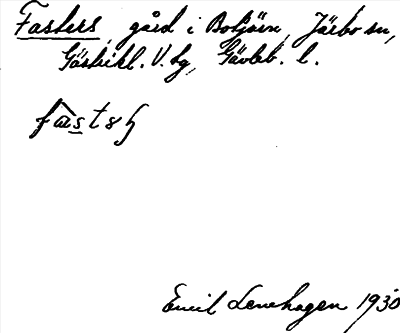 Fasters, gård i Botjärn, Järbo sn,
Gästrikl. V. hg, Gävleb. l.
Emil Lenehagen 1930